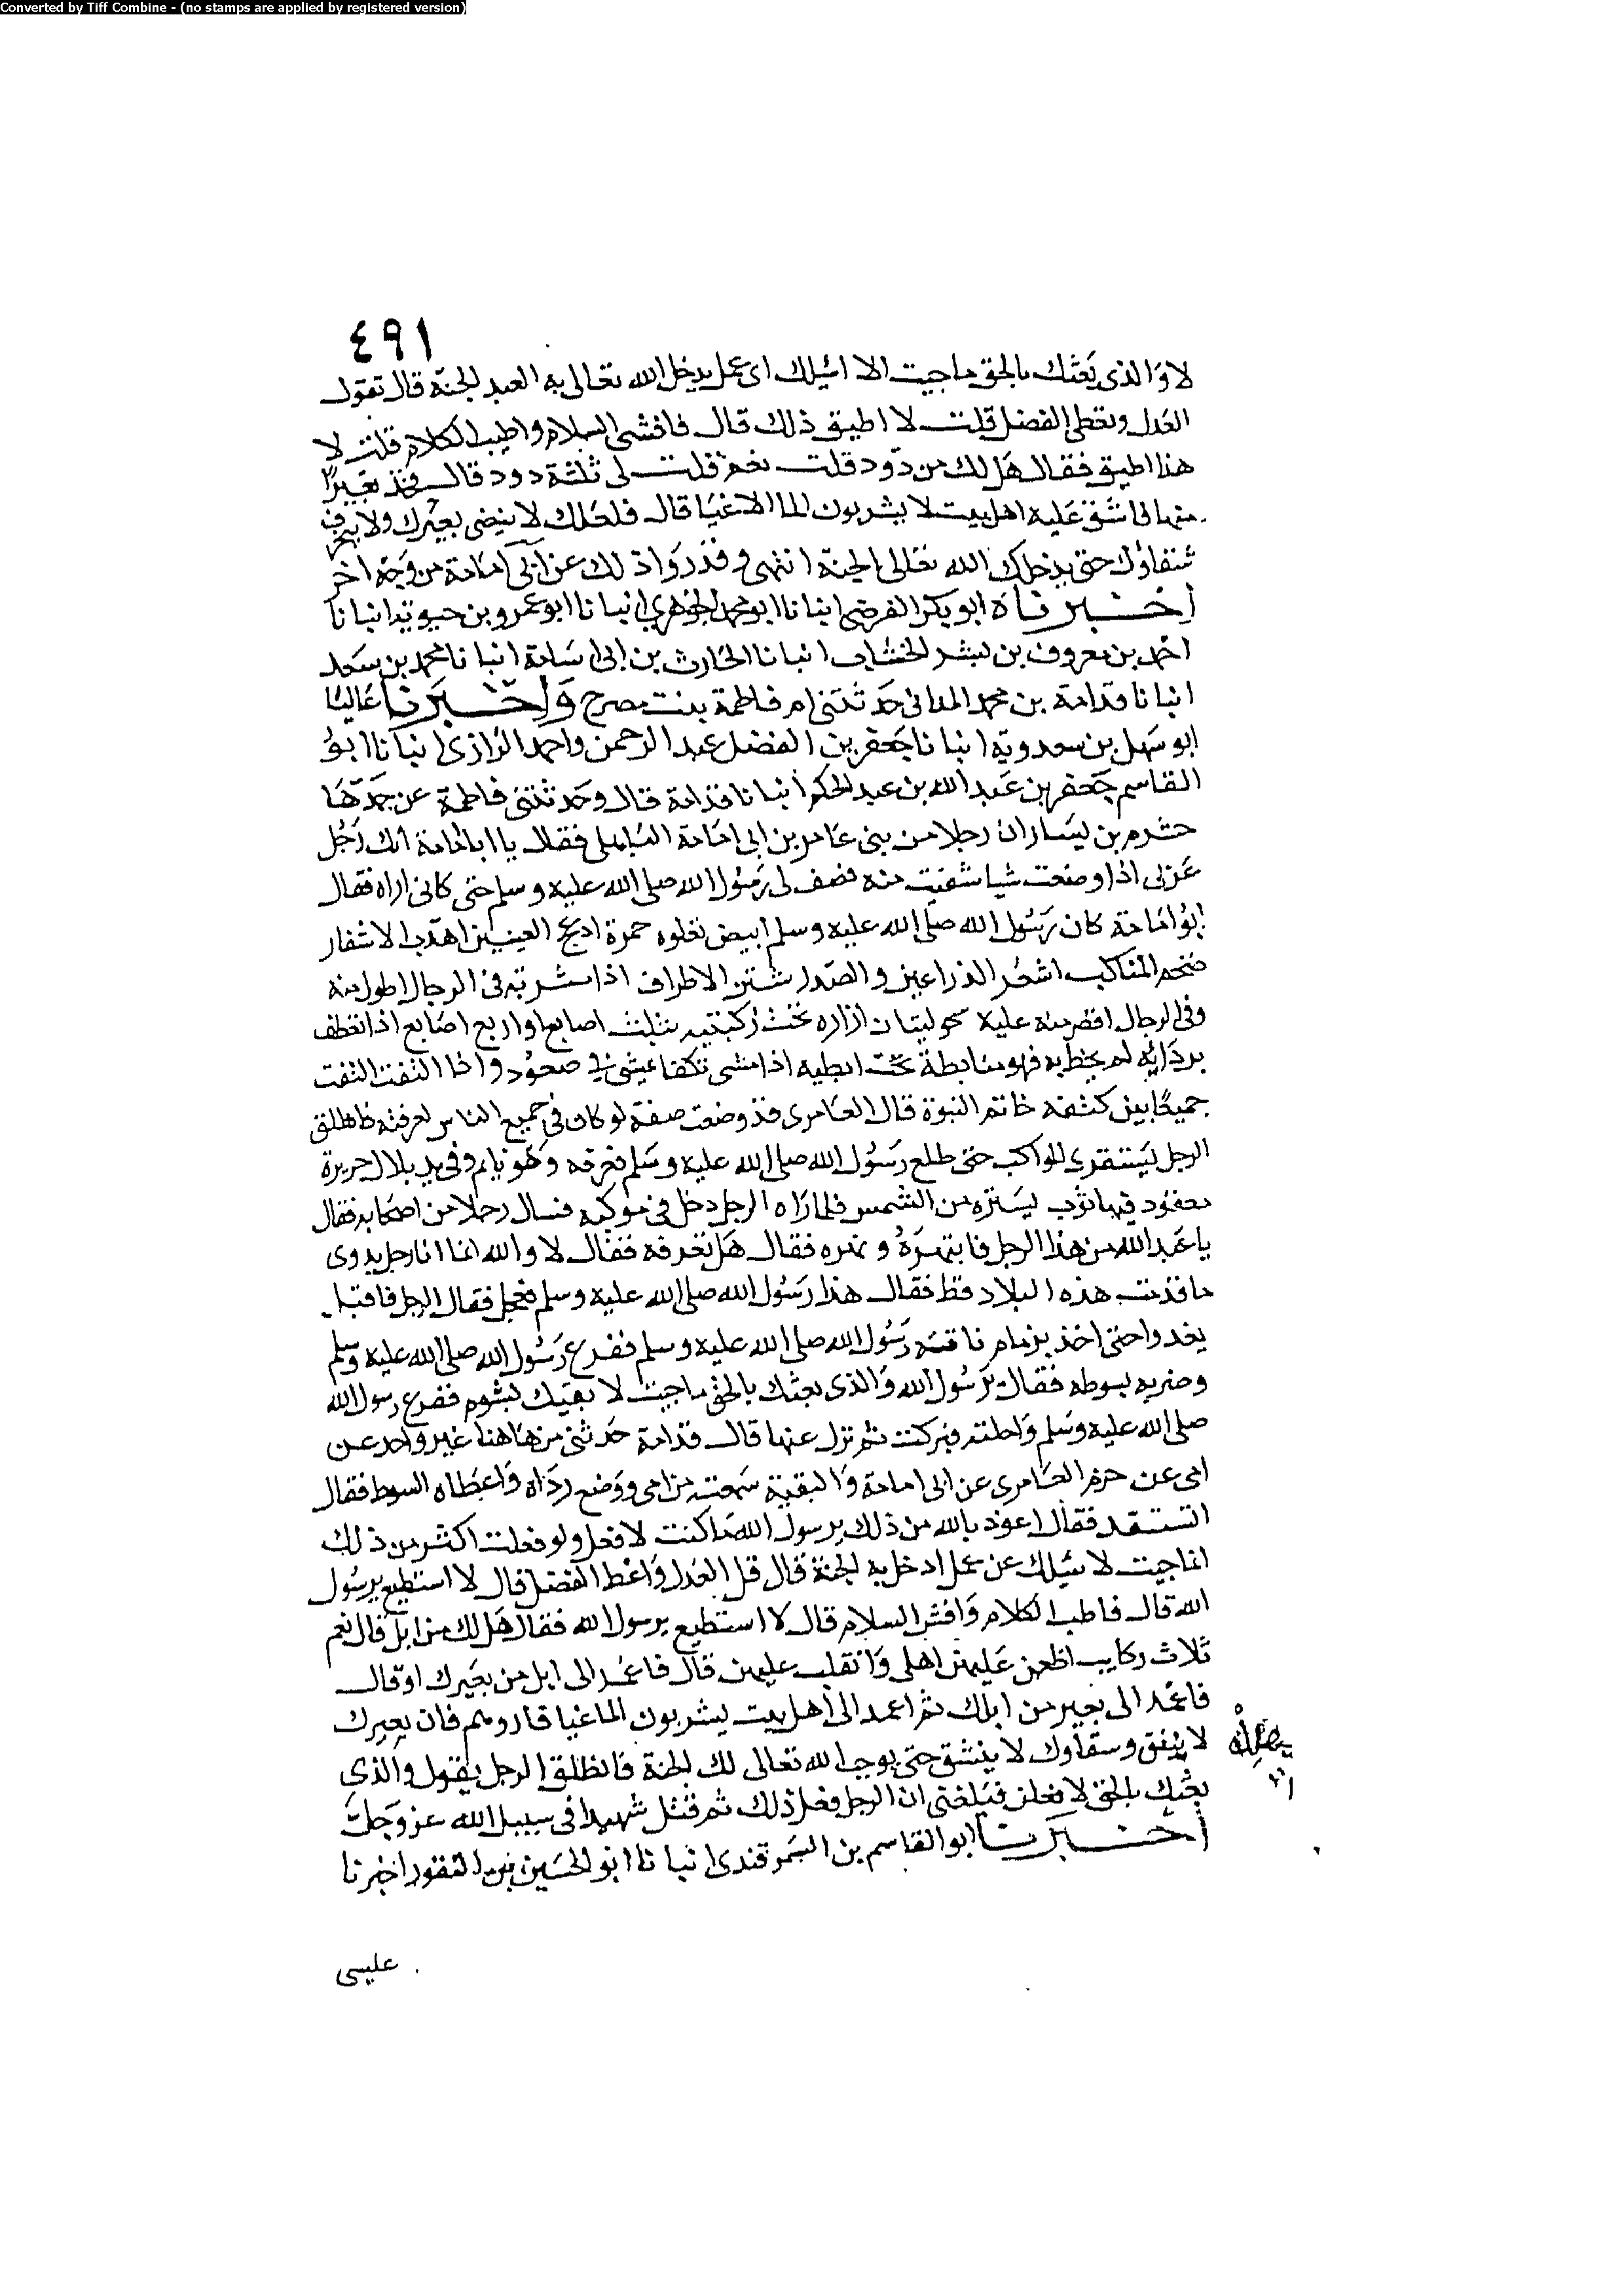 Converted by Tiff Combine - (no stamps are applied by registered version)
٤٩١
لا وَالذى بَعَثك بالحق ما جيت الا اسٔيلك اى عمل يدخل الله تعالى به العبد الجنة قال تقول
العَدل وتعطى الفضل قلت لا اطيق ذلك قال فافشى السلام واطيب الكلام قلت لا
هذا اطيق فقال هَل لك من ذود قلت نعم قلت لى ثلثة دود قال فخذ بَعيرًا
منها فاشقق عَليه اهل بيت لا يشربون الما الا غبّا قال فلعَلك لا ينضى بعيرك ولا
سقاؤك حتى يدخلك الله تعَالى الجنة انتهى وقد رَوَا ذلك عن ابى امَامة من وَجْه اخر
اخـــبرناه ابو بكر الفرضى انبانا ابو محمد الجوهرى انبانا ابو عمرو بن حيويه انبانا
احمد بن معروف بن بشر الخشاب انبانا الحَارث بن ابى اسَامة انبانا محمد بن سَعد
انبانا قدامة بن محمد المدانى حَدثتنى ام فاطمة بنت مصرح وَاخـــبَرنا عَاليًا
ابو سَهل بن سعدوية انبانا جَعفر بن الفضل عبد الرحمن واحمد الرازى انبانا ابو
القاسم جَعفر بن عَبد الله بن عبد الحكم انبانا قدامة قال وحَدثتنى فاطمة عن جَدّهَا
حشرم بن ليسَار ان رجلا من بنى عَامر بن ابى امَامة البَاهلى فقال يا ابا امَامة انك رَجُل
عَربى اذا وصفت شيا شفيت منه فصف لى رَسُول الله صلى الله عليه وسلم حتى كانى اراه فقال
ابُو امَامة كان رَسُول الله صلى الله عليه وسلم ابيض تعلوه حمرة ادعج العينين اهدَب الاشفار
ضخم المناكب اشعر الذراعين والصّدر شثن الاطراف اذا مسربة فى الرجال اطول منه
وفى الرجال اقصر منه عليه سحوليتان ازاره تحت ركبتيه بثلث اصابع او اربع اصَابع اذا تعطف
بردَائِه لم يحط به فهو متابطة تحت ابطيه اذا مشى تكفا يمشى فى صعُود واذا التفت التفت
جميعًا بين كتفيه خاتم النبوة قال العَامرى قد وصفت صفة لو كان فى جميع الناس لعرفته فانطلق
الرجل ليستقرى المواكب حتى طلع رَسُول الله صلى الله عليه وسَلم فعرفه وَهو نايم وفى يد بلال جريرة
معقود فيها ثوب ليستره من الشمس فلما رَاه الرجل دخل فى موكبه فسال رجلا من اصحَابه فقال
يا عَبد الله من هذا الرجل فانتهرَهُ ونهره فقال هَل تعرفه فقال لا والله انما انا رجل بدوى
ما قدمت هذه البلاد قط فقال هذا رَسُول الله صلى الله عليه وسلم فجعل فقال الرجل فاقبل
يغدوا حتى اخذ بزمام ناقته رَسُول الله صلى الله عليه وسلم ففزع رَسُول الله صلى الله عليه وسلم
وضربه بسوطه فقال يرَسُول الله وَالذى بعثك بالحق ما جيت لا بغيك بشوم ففزع رسول الله
صلى الله عليه وسَلم وَاحلته فبركت ثم نزل عنها قال قدامة حَدثنى من هَاهنا غير وَاحد عن
امى عن حرم العَامرى عن ابى امامة وَالبقية سَمعته من امى ووَضع ردَاه وَاعطَاه السوط فقال
استقد فقال اعوذ بالله من ذلك يرسول الله مَا كنت لافعل ولو فعلت اكثر من ذلك
انما جيت لاسٔيلك عن عمل ادخل به الجنة قال قل العَدل وَاعْط الفضل قال لا استطيع يرسُول
الله قال فاطب الكلام وَافش السلام قال لا استطيع يرسول الله فقال هَل لك من ابل قال نعم
ثلاث ركايب اظعن عَليهن اهلى وَانقلب عليهن قال فاعمد الى ابل من بعَيرك او قال
فاعمد الى بعير من ابلك ثم اعمد الى اهل بيت ليشربون الما غبا فاروهم فان بعيرك
لا ينفق وسقاوك لا ينشق حتى يوجب الله تعالى لك الجنة فانطلق الرجل يقول والذى
بعثك بالحق لافعلن فبَلغنى ان الرجل فعل ذلك ثم قتل شهيدا فى سبيل الله عز وجَل
اخـــبرنا ابو القاسم بن السَمرقندى انبانا ابو الحسَين بن النقور اخبرنا
عيسى